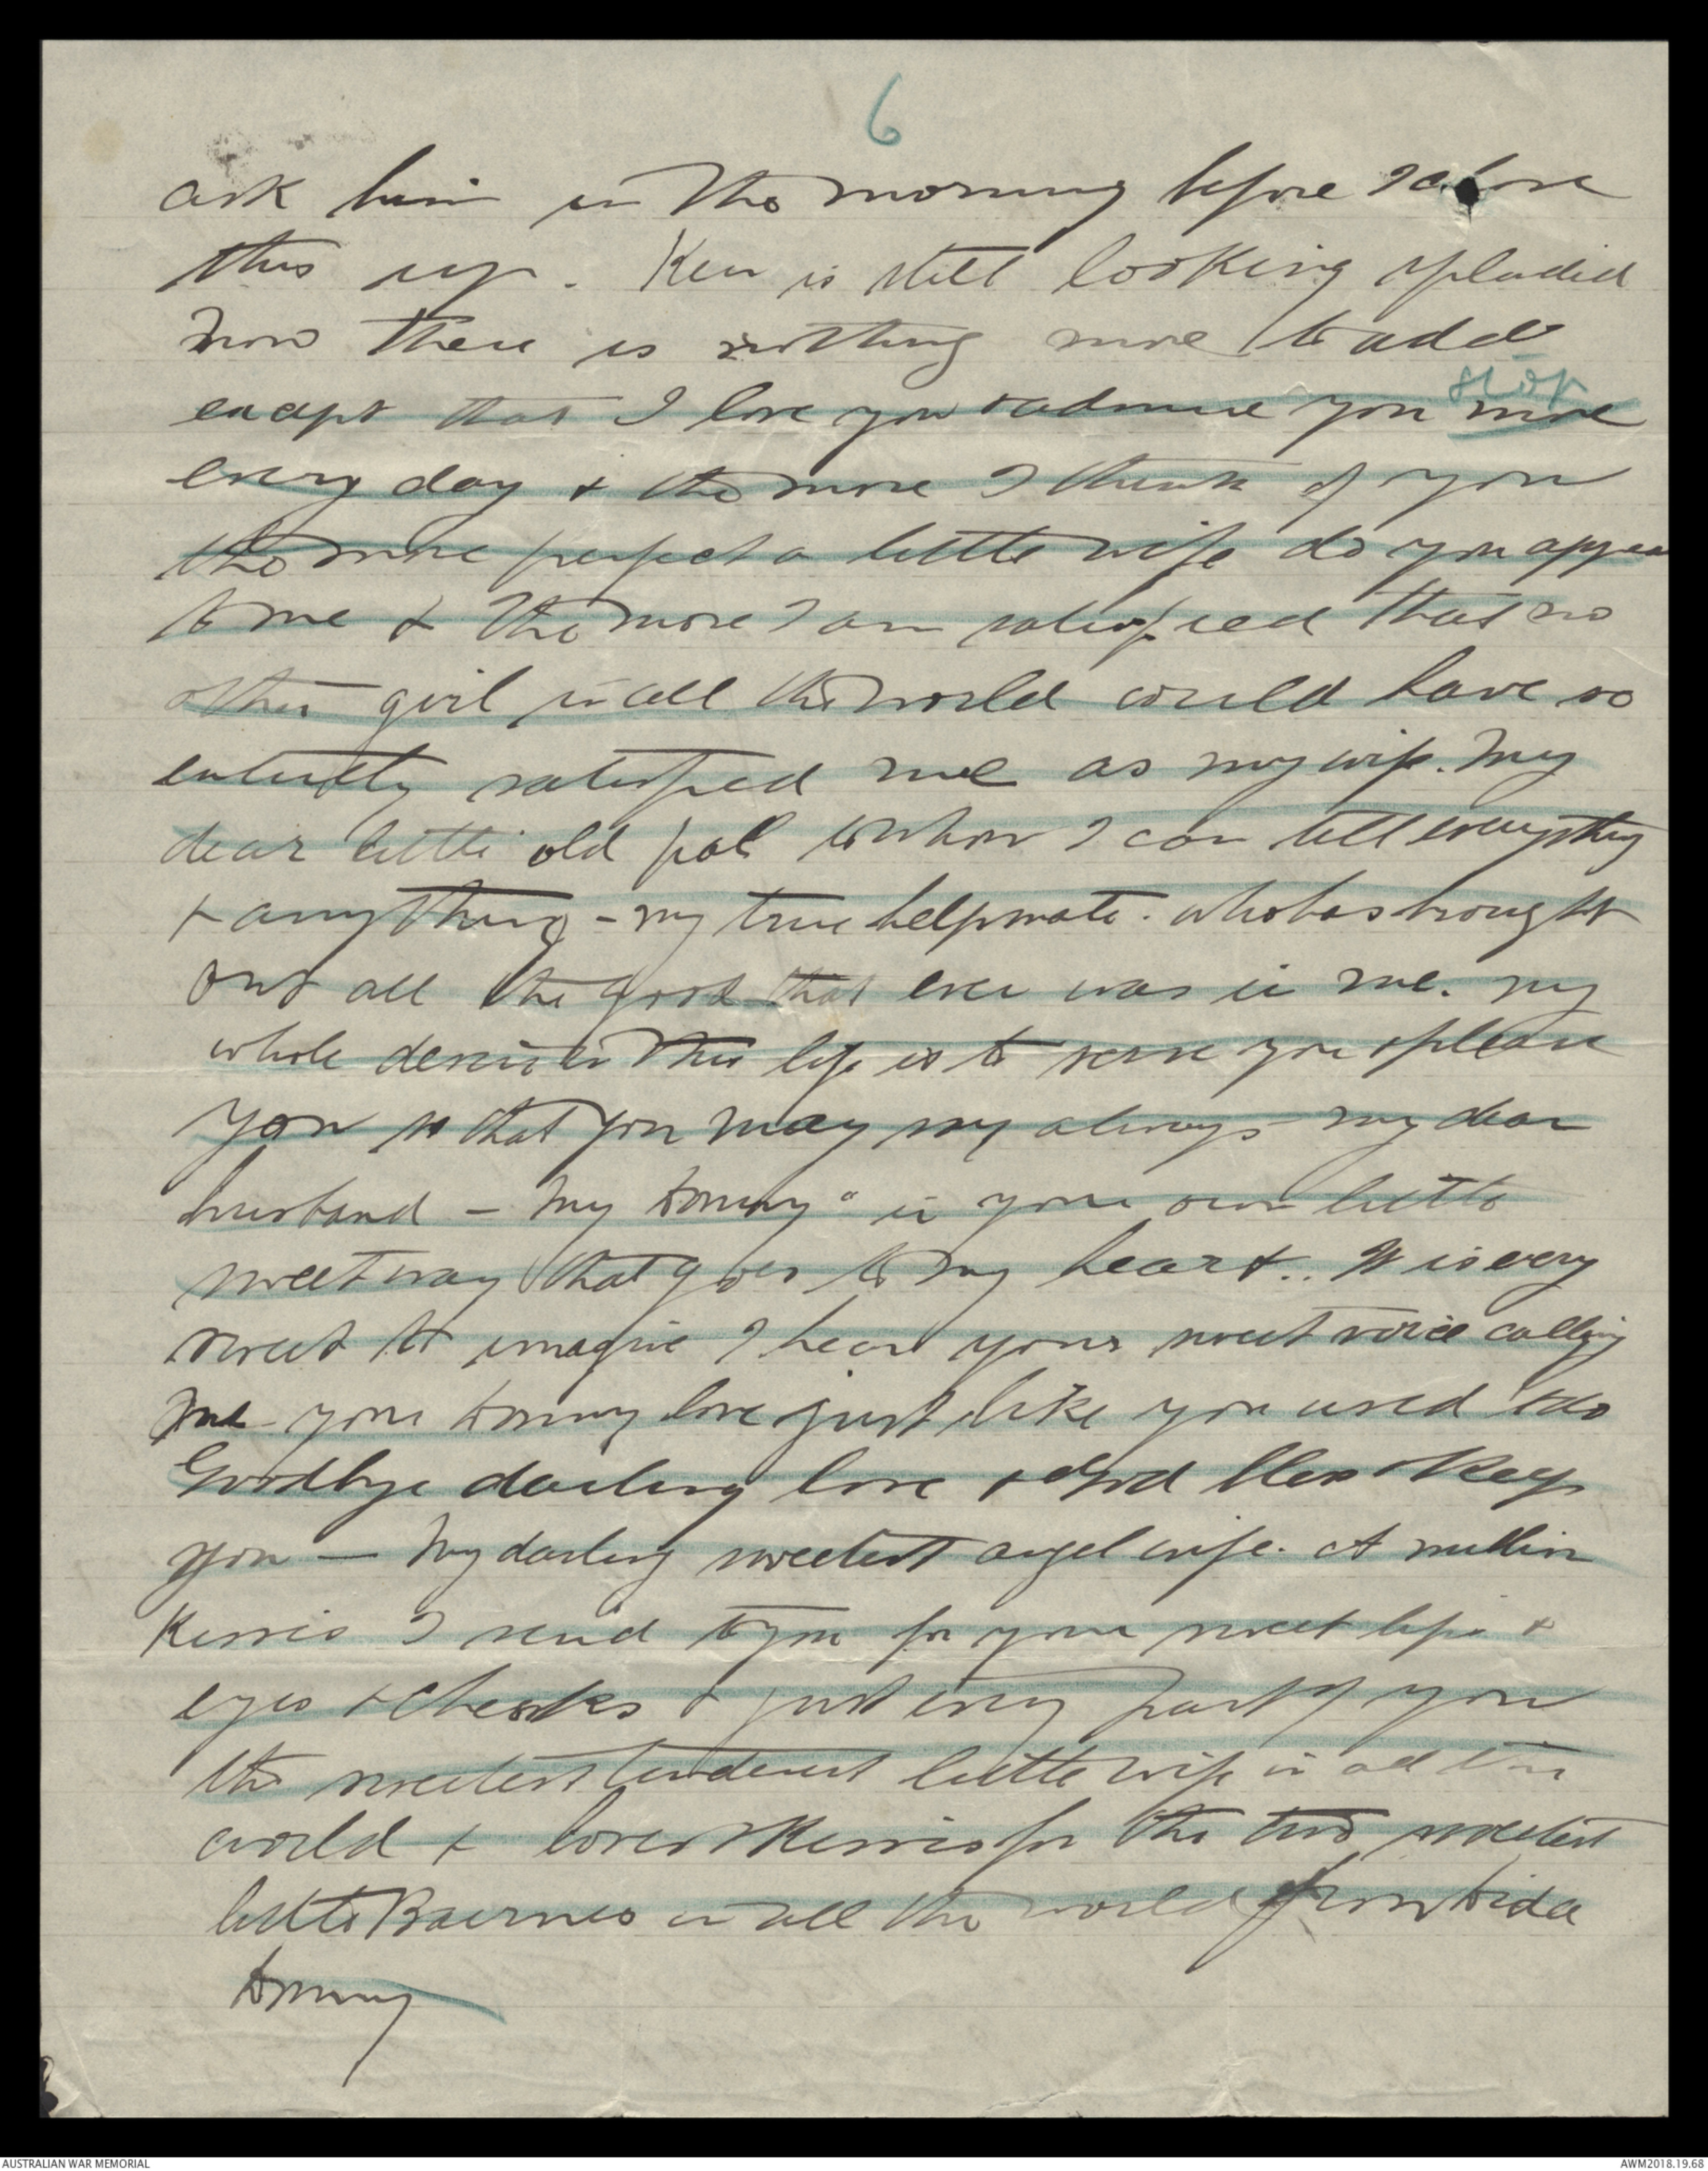 6
ask him in the morning before I close
this up. Ken is still looking splendid
Now there is nothing more to add
stop
except that I love you & admire you more
every day & the more I think of you
the more perfect a little wife do you appear
to me & the more I am satisfied that no
other girl in all the world could have so
entirely satisfied me as my wife. My
dear little old pal to whom I can tell everything
& anything - my true helpmate. who has brought
out all the good that ever was in me. my
whole desire in this life is to serve you & please
you so that you may say always my dear
husband - My tommy" in your own little
sweet way that goes to my heart.. It is very
sweet to imagine I hear your sweet voice calling
me your tommy love just like you used to do
Goodbye darling love & God bless & keep
you — My darling sweetest angel wife. A million
Kisses I send to you for your sweet lips &
eyes & cheeks & just every part of you
the sweetest tenderest little wife in all the
world & love & Kisses for the two sweetest
little Bairnies in all the world from
tommy
AUSTRALIAN WAR MEMORIAL
AWM2018.19.68